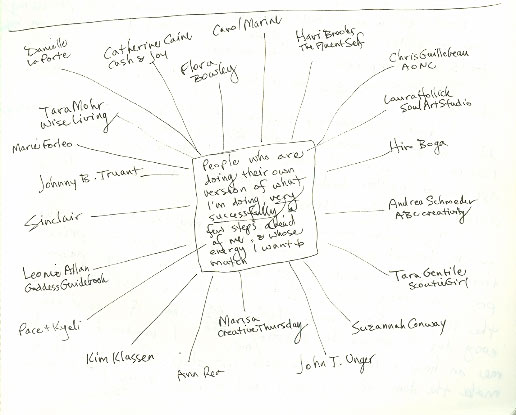 Danielle
LaPorte
Catherine Caine
Cash & Joy
Carol Marine
Flora
Bowley
Havi Brooks
The Fluent Self
Chris Guillebeau
AONC
Laura Hollick
Soul Art Studio
Hiro Boga
Andrea Schroeder
ABC creativity
Tara Gentile
Scoutie Girl
Suzannah Conway
John T. Unger
Marisa
Creative Thursday
Ann Rea
Kim Klassen
Pace & Kyeli
Leonie Allan
Goddess Guidebook
Sinclair
Johnny B. Truant
Marie Forleo
Tara Mohr
Wise Living
People who are
doing their own
version of what
I'm doing, very
successfully, a
few steps ahead
of me, & whose
energy I want to
match